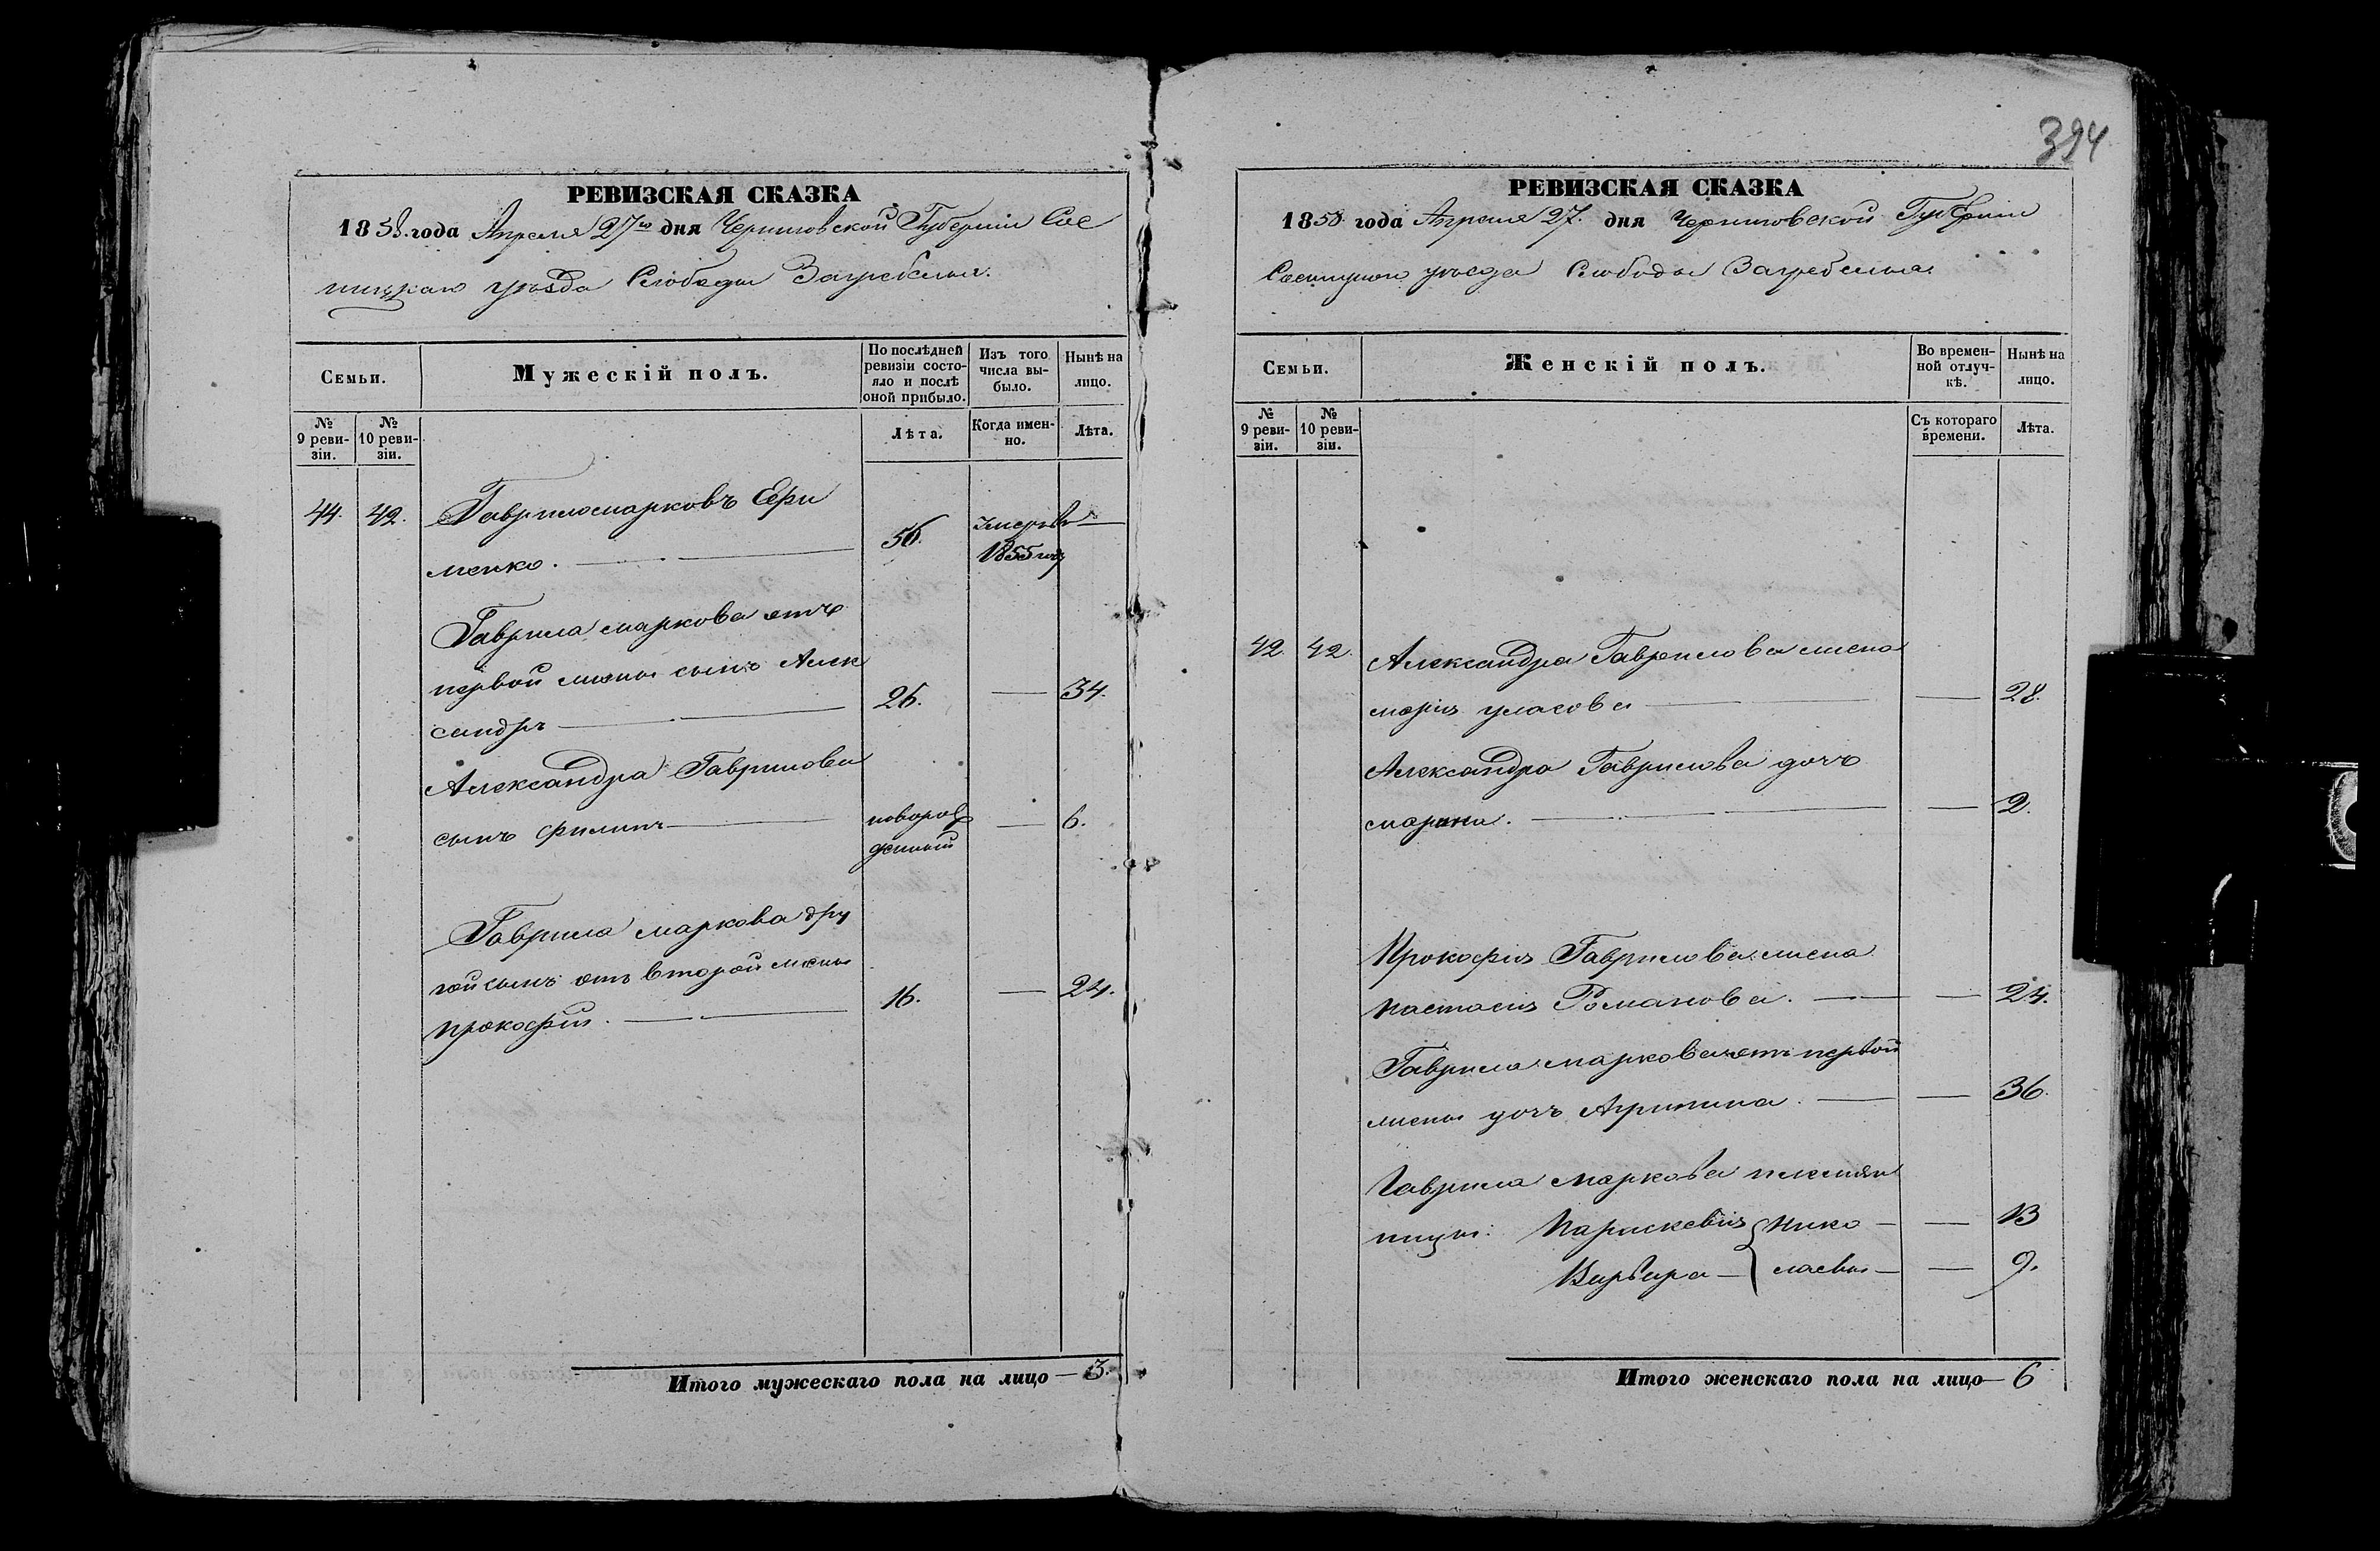 394
РЕВИЗСКАЯ СКАЗКА
1858. года Апреля 27го дня Черниговской Губернии Сос
ницкаго уѣзда Слободы Загребелья.
Семьи.
Мужескій полъ.
По послѣдней ревизіи состояло и послѣ оной прибыло.
Изъ того числа выбыло.
Нынѣ на лицо.
№ 9 ревизіи.
№ 10 ревизіи.
Лѣта.
Когда именно.
Лѣта.
44. 42. Гаврило марковъ Ефи
менко. 56. умеръ въ 1855 году
Гаврила маркова отъ
первой жены сынъ Алек
сандръ 26. — 34.
Александра Гаврилова
сынъ филипъ новорож
денный — 6.
Гаврила маркова дру
гой сынъ отъ второй жены
прокофий. 16. — 24.
Итого мужескаго пола на лицо — 3.
РЕВИЗСКАЯ СКАЗКА
1858 года Апреля 27. дня Черниговской Губернии
Сосницкого уѣзда Слободы Загребелья
Семьи.
Женскій полъ.
Во временной отлучкѣ.
Нынѣ на лицо.
№ 9 ревизіи.
№ 10 ревизіи.
Съ котораго времени.
Лѣта.
42. 42. Александра Гаврилова жена
марія уласова — 28.
Александра Гаврилова дочъ
марина. — 2.
Прокофія Гаврилова жена
настасія Романова. — 24.
Гаврила маркова отъ первой
жены дочъ Агрипина. — 36.
Гаврила маркова племян
ницы: Параскевія } Нико — 13
Варвара — } лаевы — 9.
Итого женскаго пола на лицо — 6